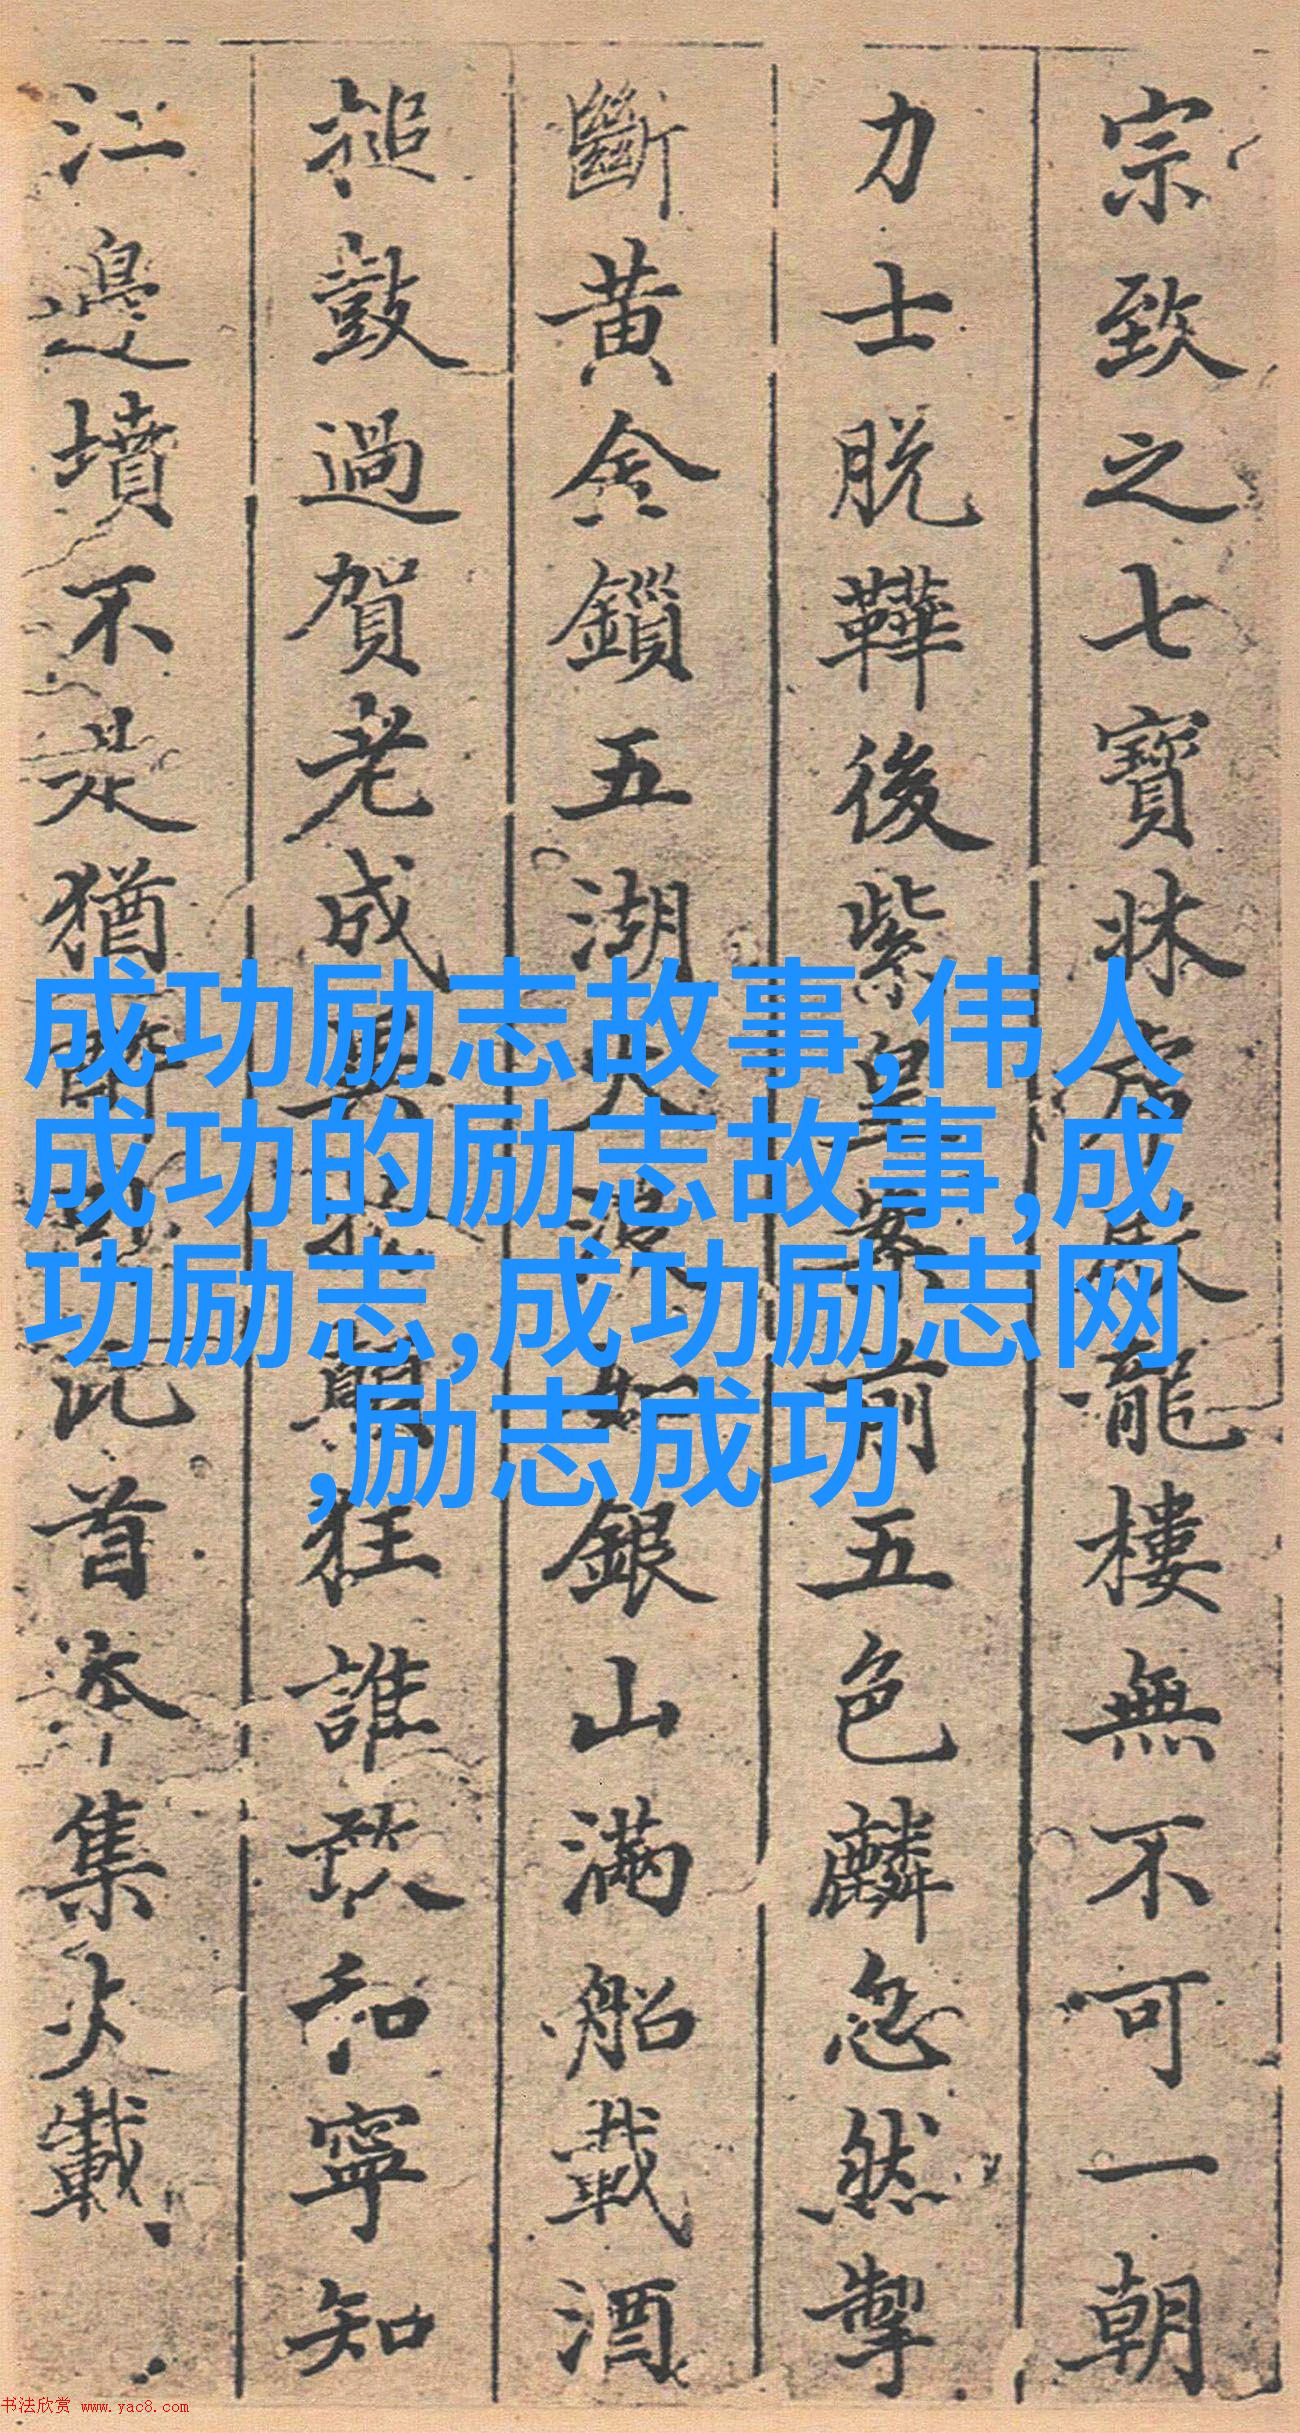 宗致之七寶牀虎殿龍樓無不可一朝
力士脱鞾後紫皇案前五色麟忽然掣
斷黃金鎖五湖大浪如銀山滿船載酒
搥鼓過賀老成異物顛狂誰敢和寧知
江邊墳不是猶醉臥此首本集火載
成功励志故事,伟人
成功的励志故事,成
功励志,成功励志网
,励志成功
书法欣赏 www.yac8.com